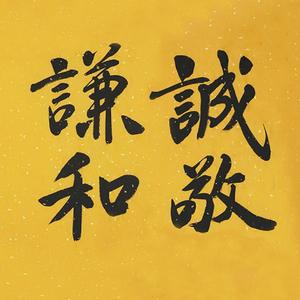 誠敬
謙和